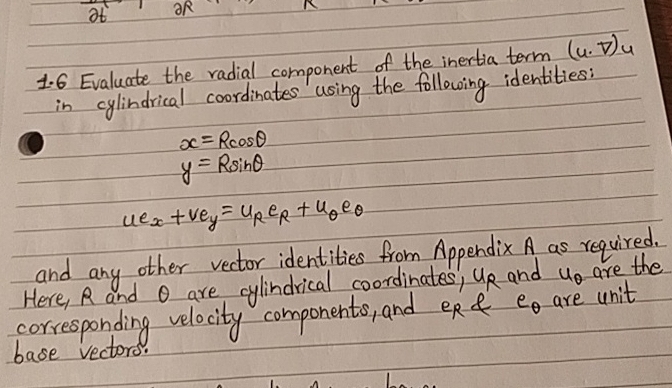 ∂t ∂R R
1.6 Evaluate the radial component of the inertia term (u.∇)u
in cylindrical coordinates using the following identities:
x = Rcosθ
y = Rsinθ
ueₓ + vey = uReR + uθeθ
and any other vector identities from Appendix A as required.
Here, R and θ are cylindrical coordinates, uR and uθ are the
corresponding velocity components, and eR & eθ are unit
base vectors.